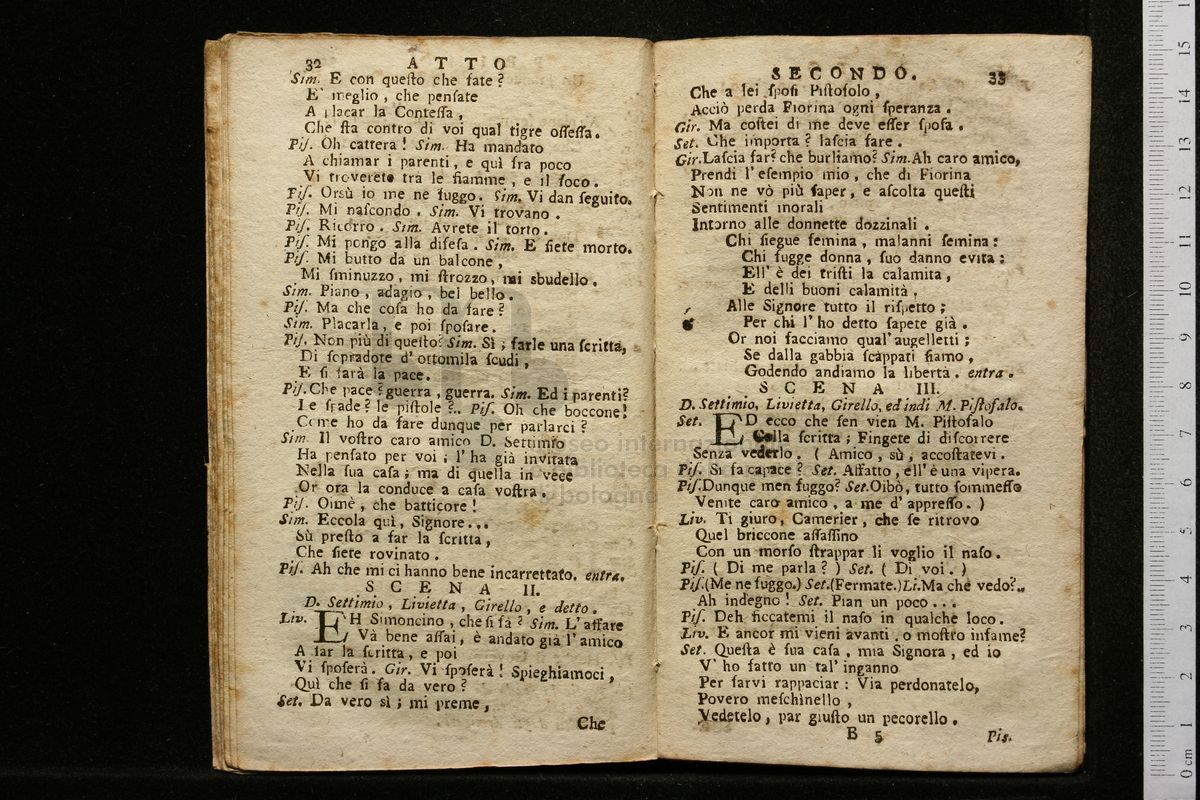 32 ATTO
Sim. E con queſto che fate?
E' meglio, che penſate
A placar la Conteſſa,
Che ſta contro di voi qual tigre oſſeſſa.
Piſ. Oh cattera! Sim. Ha mandato
A chiamar i parenti, e quì fra poco
Vi troverete tra le fiamme, e il foco.
Piſ. Orsù io me ne fuggo. Sim. Vi dan ſeguito.
Piſ. Mi naſcondo. Sim. Vi trovano.
Piſ. Ricorro. Sim. Avrete il torto.
Piſ. Mi pongo alla difeſa. Sim. E ſiete morto.
Piſ. Mi butto da un balcone,
Mi ſminuzzo, mi ſtrozzo, mi sbudello.
Sim. Piano, adagio, bel bello.
Piſ. Ma che coſa ho da fare?
Sim. Placarla, e poi ſpoſare.
Piſ. Non più di queſto? Sim. Sì; farle una ſcritta,
Di ſopradote d'ottomila ſcudi,
E ſi farà la pace.
Piſ. Che pace? guerra, guerra. Sim. Ed i parenti?
Le ſpade? le piſtole?.. Piſ. Oh che boccone!
Come ho da fare dunque per parlarci?
Sim. Il voſtro caro amico D. Settimio
Ha penſato per voi; l'ha già invitata
Nella ſua caſa; ma di quella in vece
Or ora la conduce a caſa voſtra.
Piſ. Oimè, che batticore!
Sim. Eccola quì, Signore...
Sù preſto a far la ſcritta,
Che ſiete rovinato.
Piſ. Ah che mi ci hanno bene incarrettato. entra.
SCENA II.
D. Settimio, Livietta, Girello, e detto.
Liv. EH Simoncino, che ſi fà? Sim. L'affare
Và bene aſſai, è andato già l'amico
A far la ſcritta, e poi
Vi ſpoſerà. Gir. Vi ſpoſerà! Spieghiamoci,
Quì che ſi fa da vero?
Set. Da vero sì; mi preme,
Che
SECONDO. 33
Che a lei ſpoſi Piſtofolo,
Acciò perda Fiorina ogni ſperanza.
Gir. Ma coſtei di me deve eſſer ſpoſa.
Set. Che importa? laſcia fare.
Gir. Laſcia far? che burliamo? Sim. Ah caro amico,
Prendi l'eſempio mio, che di Fiorina
Non ne vò più ſaper, e aſcolta queſti
Sentimenti morali
Intorno alle donnette dozzinali.
Chi ſiegue femina, malanni ſemina:
Chi fugge donna, ſuo danno evita:
Ell' è dei triſti la calamita,
E delli buoni calamità,
Alle Signore tutto il riſpetto;
Per chi l'ho detto ſapete già.
Or noi facciamo qual'augelletti;
Se dalla gabbia ſcappati ſiamo,
Godendo andiamo la libertà. entra.
SCENA III.
D. Settimio, Livietta, Girello, ed indi M. Piſtofalo.
Set. ED ecco che ſen vien M. Piſtofalo
Colla ſcritta; Fingete di diſcorrere
Senza vederlo. (Amico, sù, accoſtatevi.
Piſ. Si fa capace? Set. Affatto, ell' è una vipera.
Piſ. Dunque men fuggo? Set. Oibò, tutto ſommeſſo
Venite caro amico, a me d'appreſſo.)
Liv. Ti giuro, Camerier, che ſe ritrovo
Quel briccone aſſaſſino
Con un morſo ſtrappar li voglio il naſo.
Piſ. (Di me parla?) Set. (Di voi.)
Piſ. (Me ne fuggo.) Set. (Fermate.) Li. Ma che vedo?..
Ah indegno! Set. Pian un poco...
Piſ. Deh ficcatemi il naſo in qualche loco.
Liv. E ancor mi vieni avanti, o moſtro infame?
Set. Queſta è ſua caſa, mia Signora, ed io
V' ho fatto un tal' inganno
Per farvi rappaciar: Via perdonatelo,
Povero meſchinello,
Vedetelo, par giuſto un pecorello.
B 5 Pis.